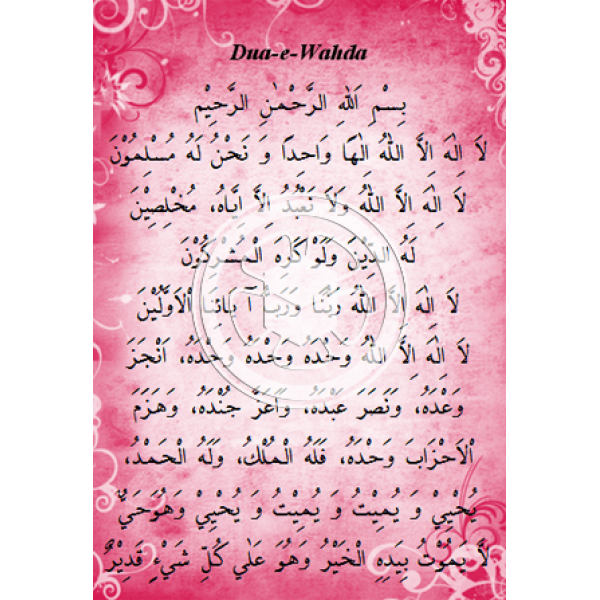 Dua-e-Wahda
بِسْمِ اللهِ الرَّحْمٰنِ الرَّحِيْمِ
لَا اِلٰهَ اِلَّا اللهُ اِلٰهًا وَاحِدًا وَ نَحْنُ لَهُ مُسْلِمُوْنَ
لَا اِلٰهَ اِلَّا اللهُ وَلَا نَعْبُدُ اِلَّا اَيَّاهُ، مُخْلِصِيْنَ
لَهُ الدِّيْنَ وَلَوْ كَرِهَ الْمُشْرِكُوْنَ
لَا اِلٰهَ اِلَّا اللهُ رَبُّنَا وَرَبُّ آ بَائِنَا اْلاَوَّلِيْنَ
لَا اِلٰهَ اِلَّا اللهُ وَحْدَهُ وَحْدَهُ وَحْدَهُ، اَنْجَزَ
وَعْدَهُ، وَنَصَرَ عَبْدَهُ، وَاَعَزَّ جُنْدَهُ، وَهَزَمَ
اْلاَحْزَابَ وَحْدَهُ، فَلَهُ الْمُلْكُ، وَلَهُ الْحَمْدُ،
يُحْيِيْ وَ يُمِيْتُ وَ يُمِيْتُ وَ يُحْيِيْ وَهُوَحَيٌّ
لَّا يَمُوْتُ بِيَدِهِ الْخَيْرُ وَهُوَ عَلٰي كُلِّ شَيْءٍ قَدِيْرٌ